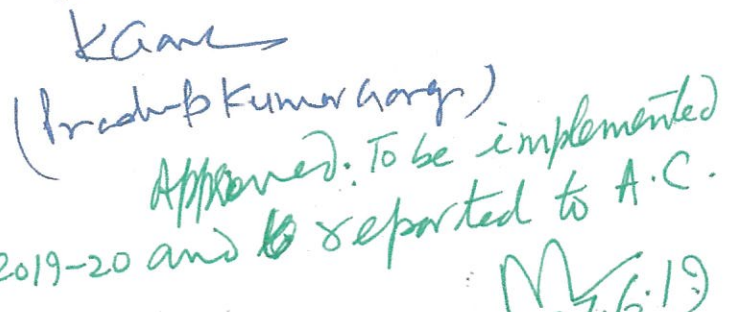 KGarg
(Pradeep Kumar Garg)
Approved. To be implemented
2019-20 and reported to A.C.
6.19